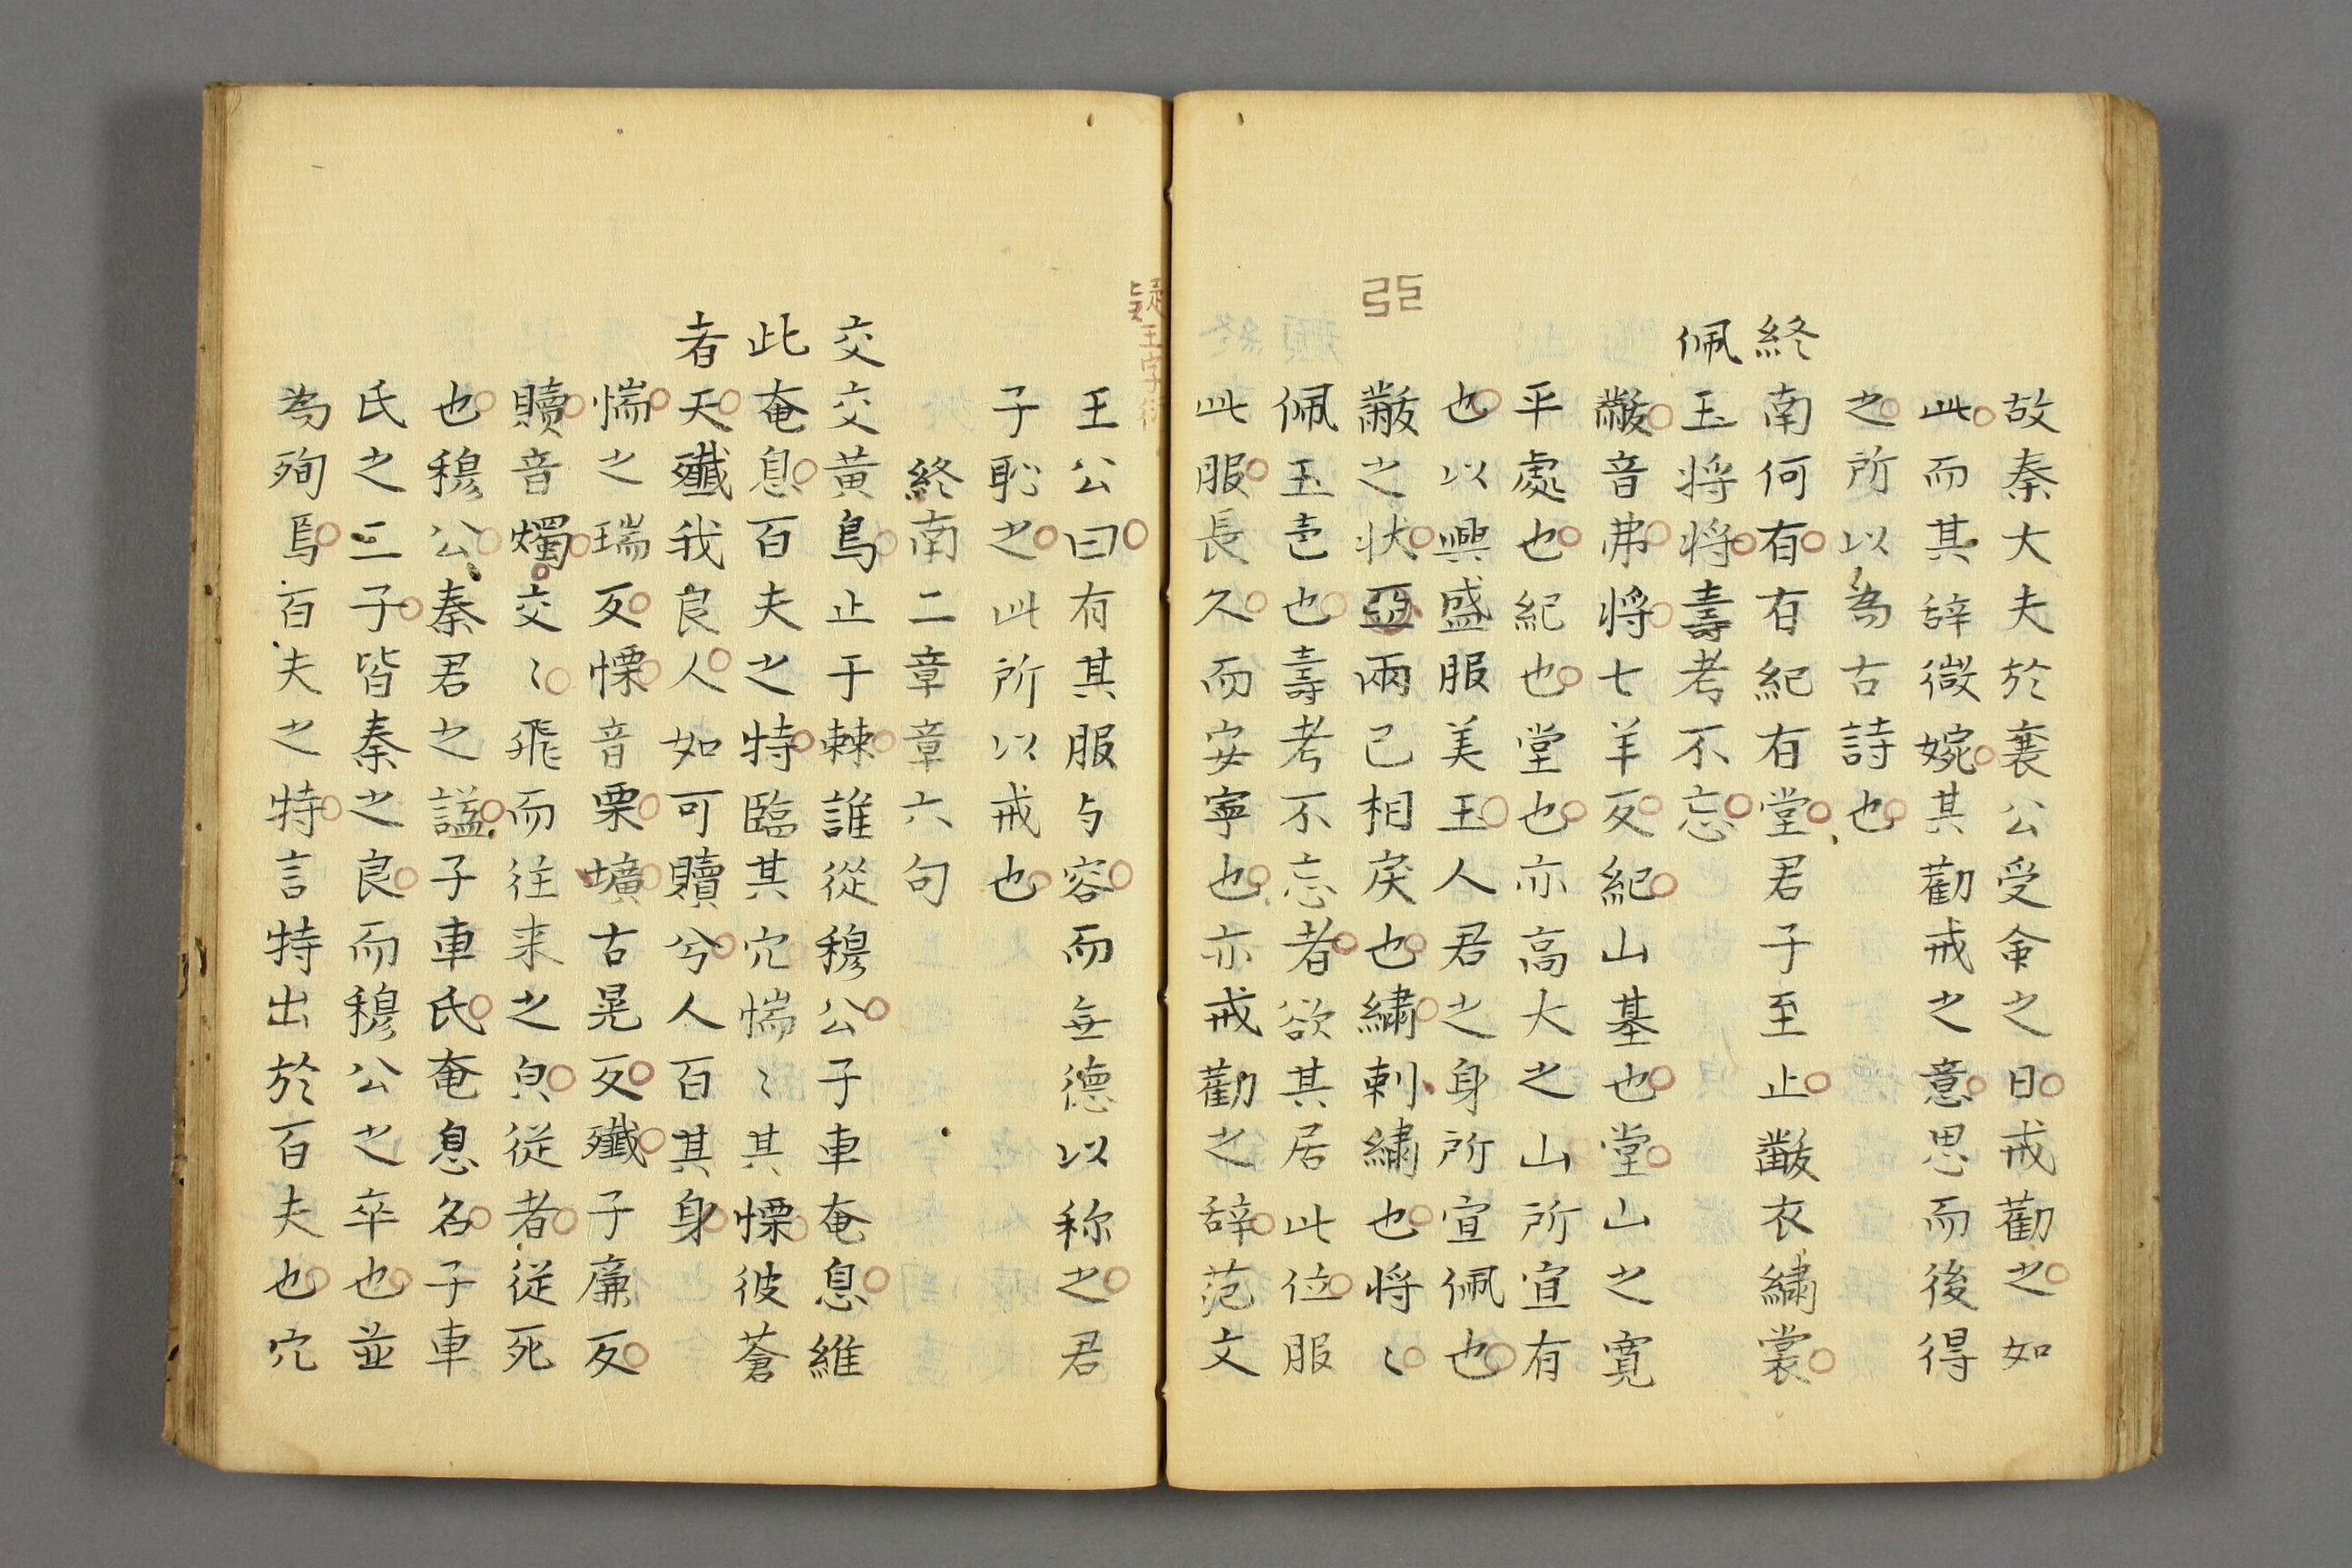 故秦大夫於襄公受命之日戒勸之如
此而其辞微婉其勸戒之意思而後得
之所以為古詩也
終南何有有紀有堂君子至止黻衣繡裳
佩玉将将壽考不忘
黻音弗将七羊反紀山基也堂山之寛
平處也紀也堂也亦高大之山所宜有
也以興盛服美王人君之身所宜佩也
黻之状亞兩己相戾也繡刺繡也将〻
佩玉壱也壽考不忘者欲其居此位服
此服長久而安寧也亦戒勸之辞范文
疑王字衍
王公曰有其服与容而無德以称之君
子恥之此所以戒也
終南二章章六句
交交黄鳥止于棘誰從穆公子車奄息維
此奄息百夫之特臨其穴惴〻其慄彼蒼
者天殲我良人如可贖兮人百其身
惴之瑞反慄音栗壙古晃反殲子廉反
贖音燭交〻飛而往来之皃従者従死
也穆公秦君之謚子車氏奄息名子車
氏之三子皆秦之良而穆公之卒也並
為殉焉百夫之特言特出於百夫也穴